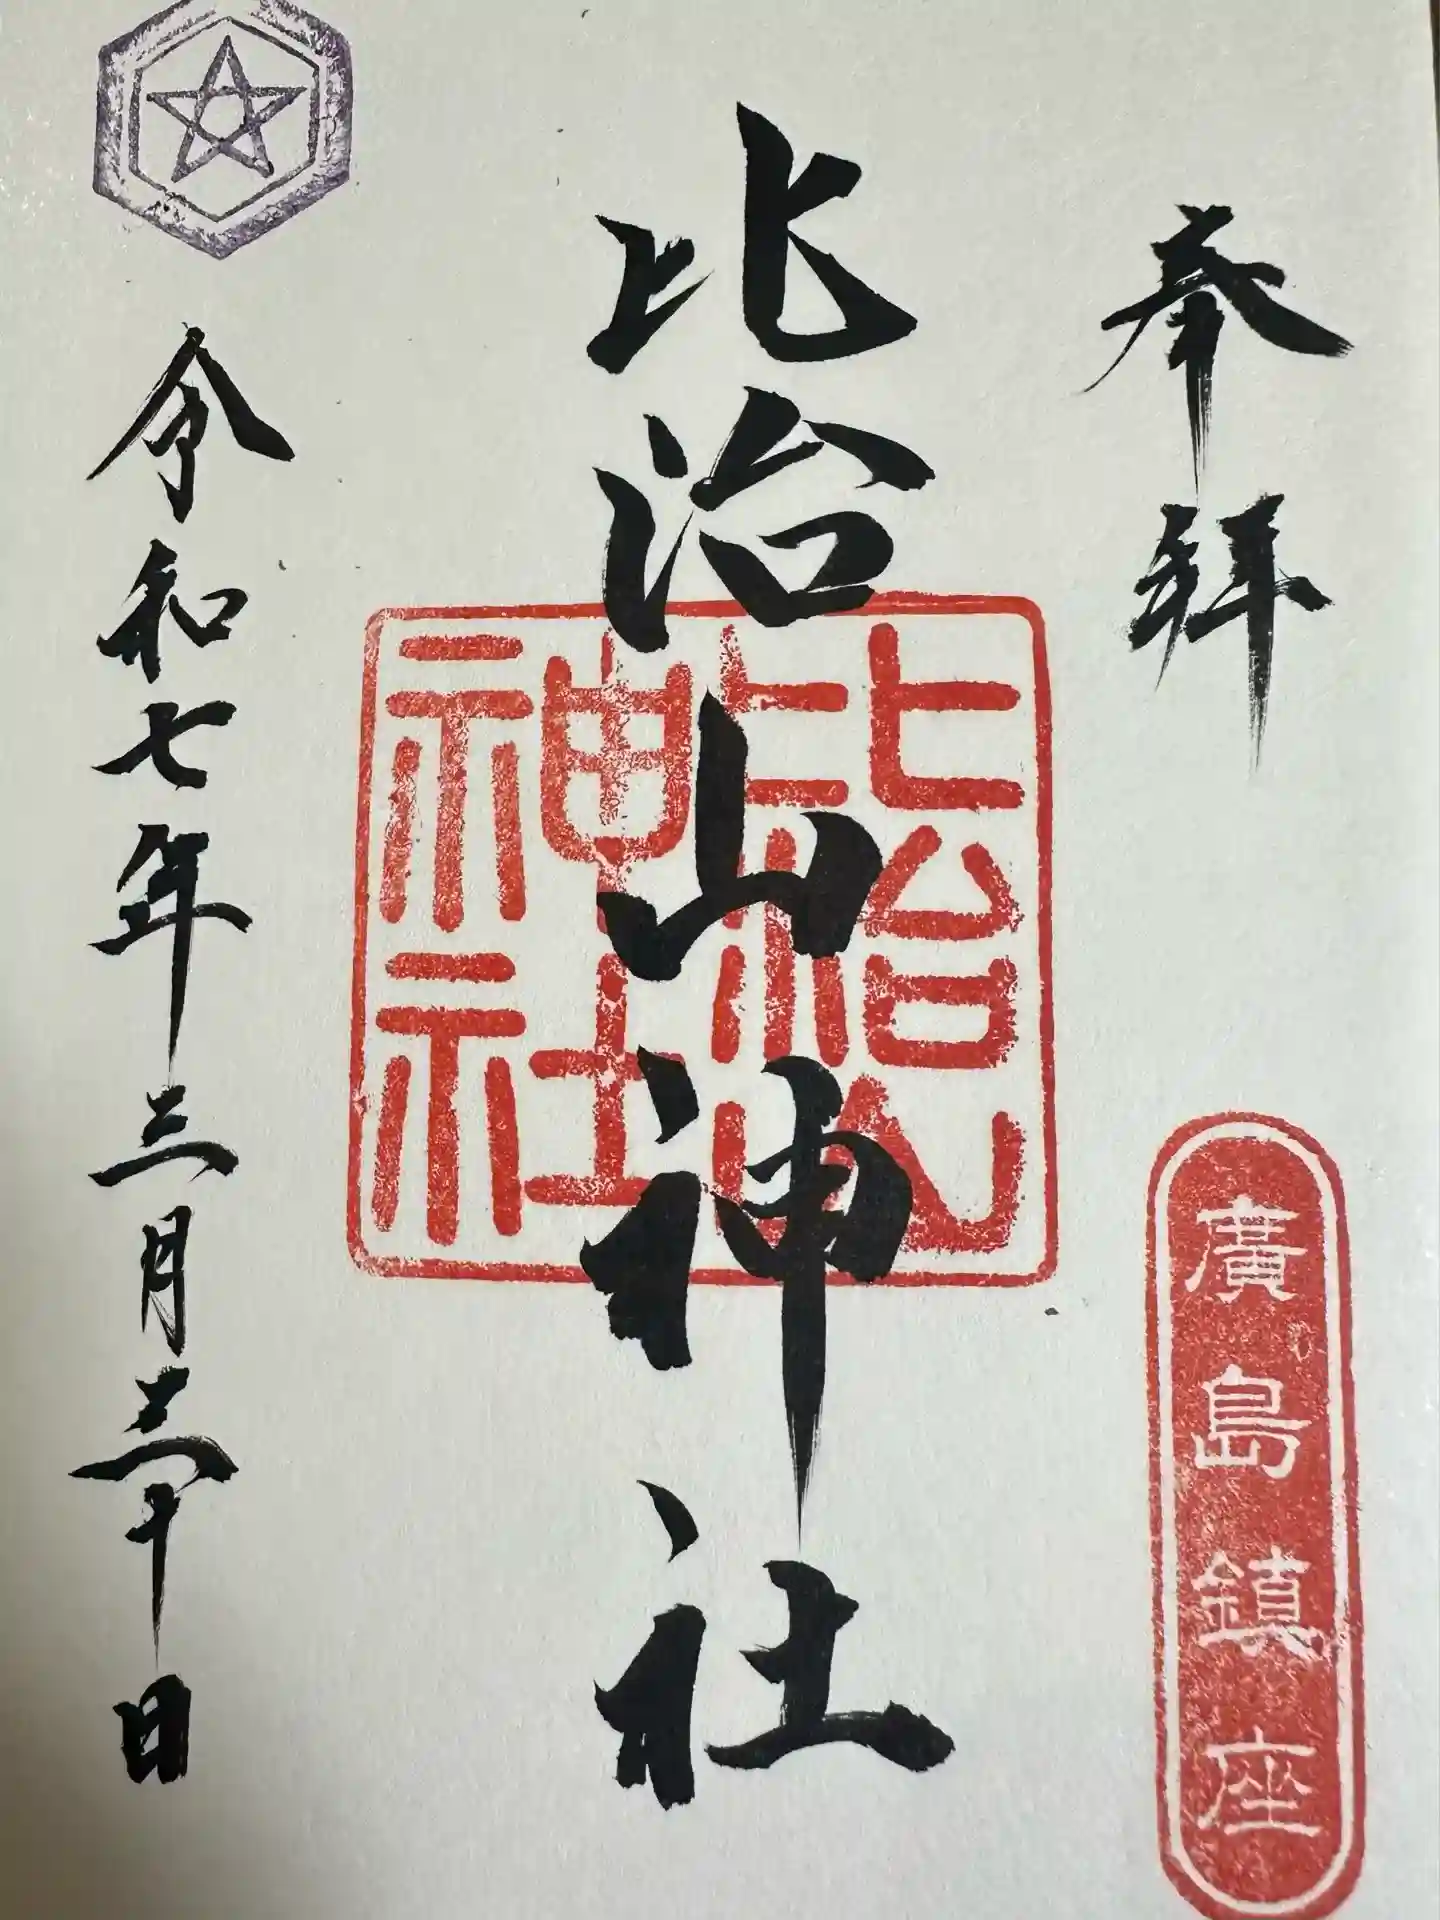 奉拝
廣島鎮座
比治山神社
比治山神社
令和七年三月三十日